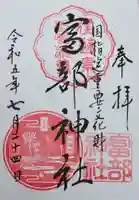 奉拝
国指定重要文化財
富部神社
令和五年七月二十四日